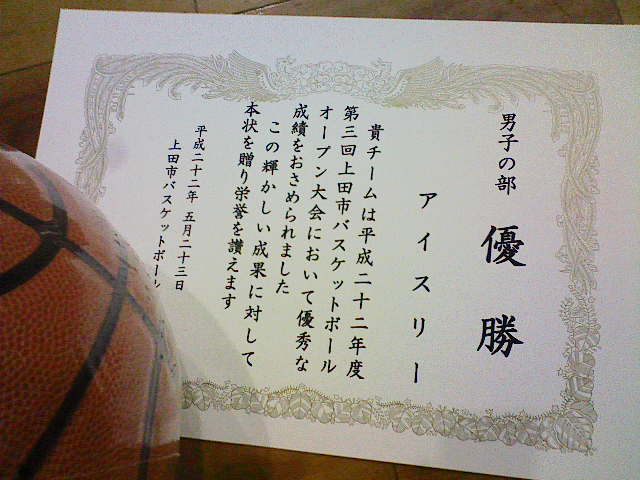 男子の部 優勝
アイスリー
貴チームは平成二十二年度
第三回上田市バスケットボール
オープン大会において優秀な
成績をおさめられました
この輝かしい成果に対して
本状を贈り栄誉を讃えます
平成二十二年 五月二十三日
上田市バスケットボール